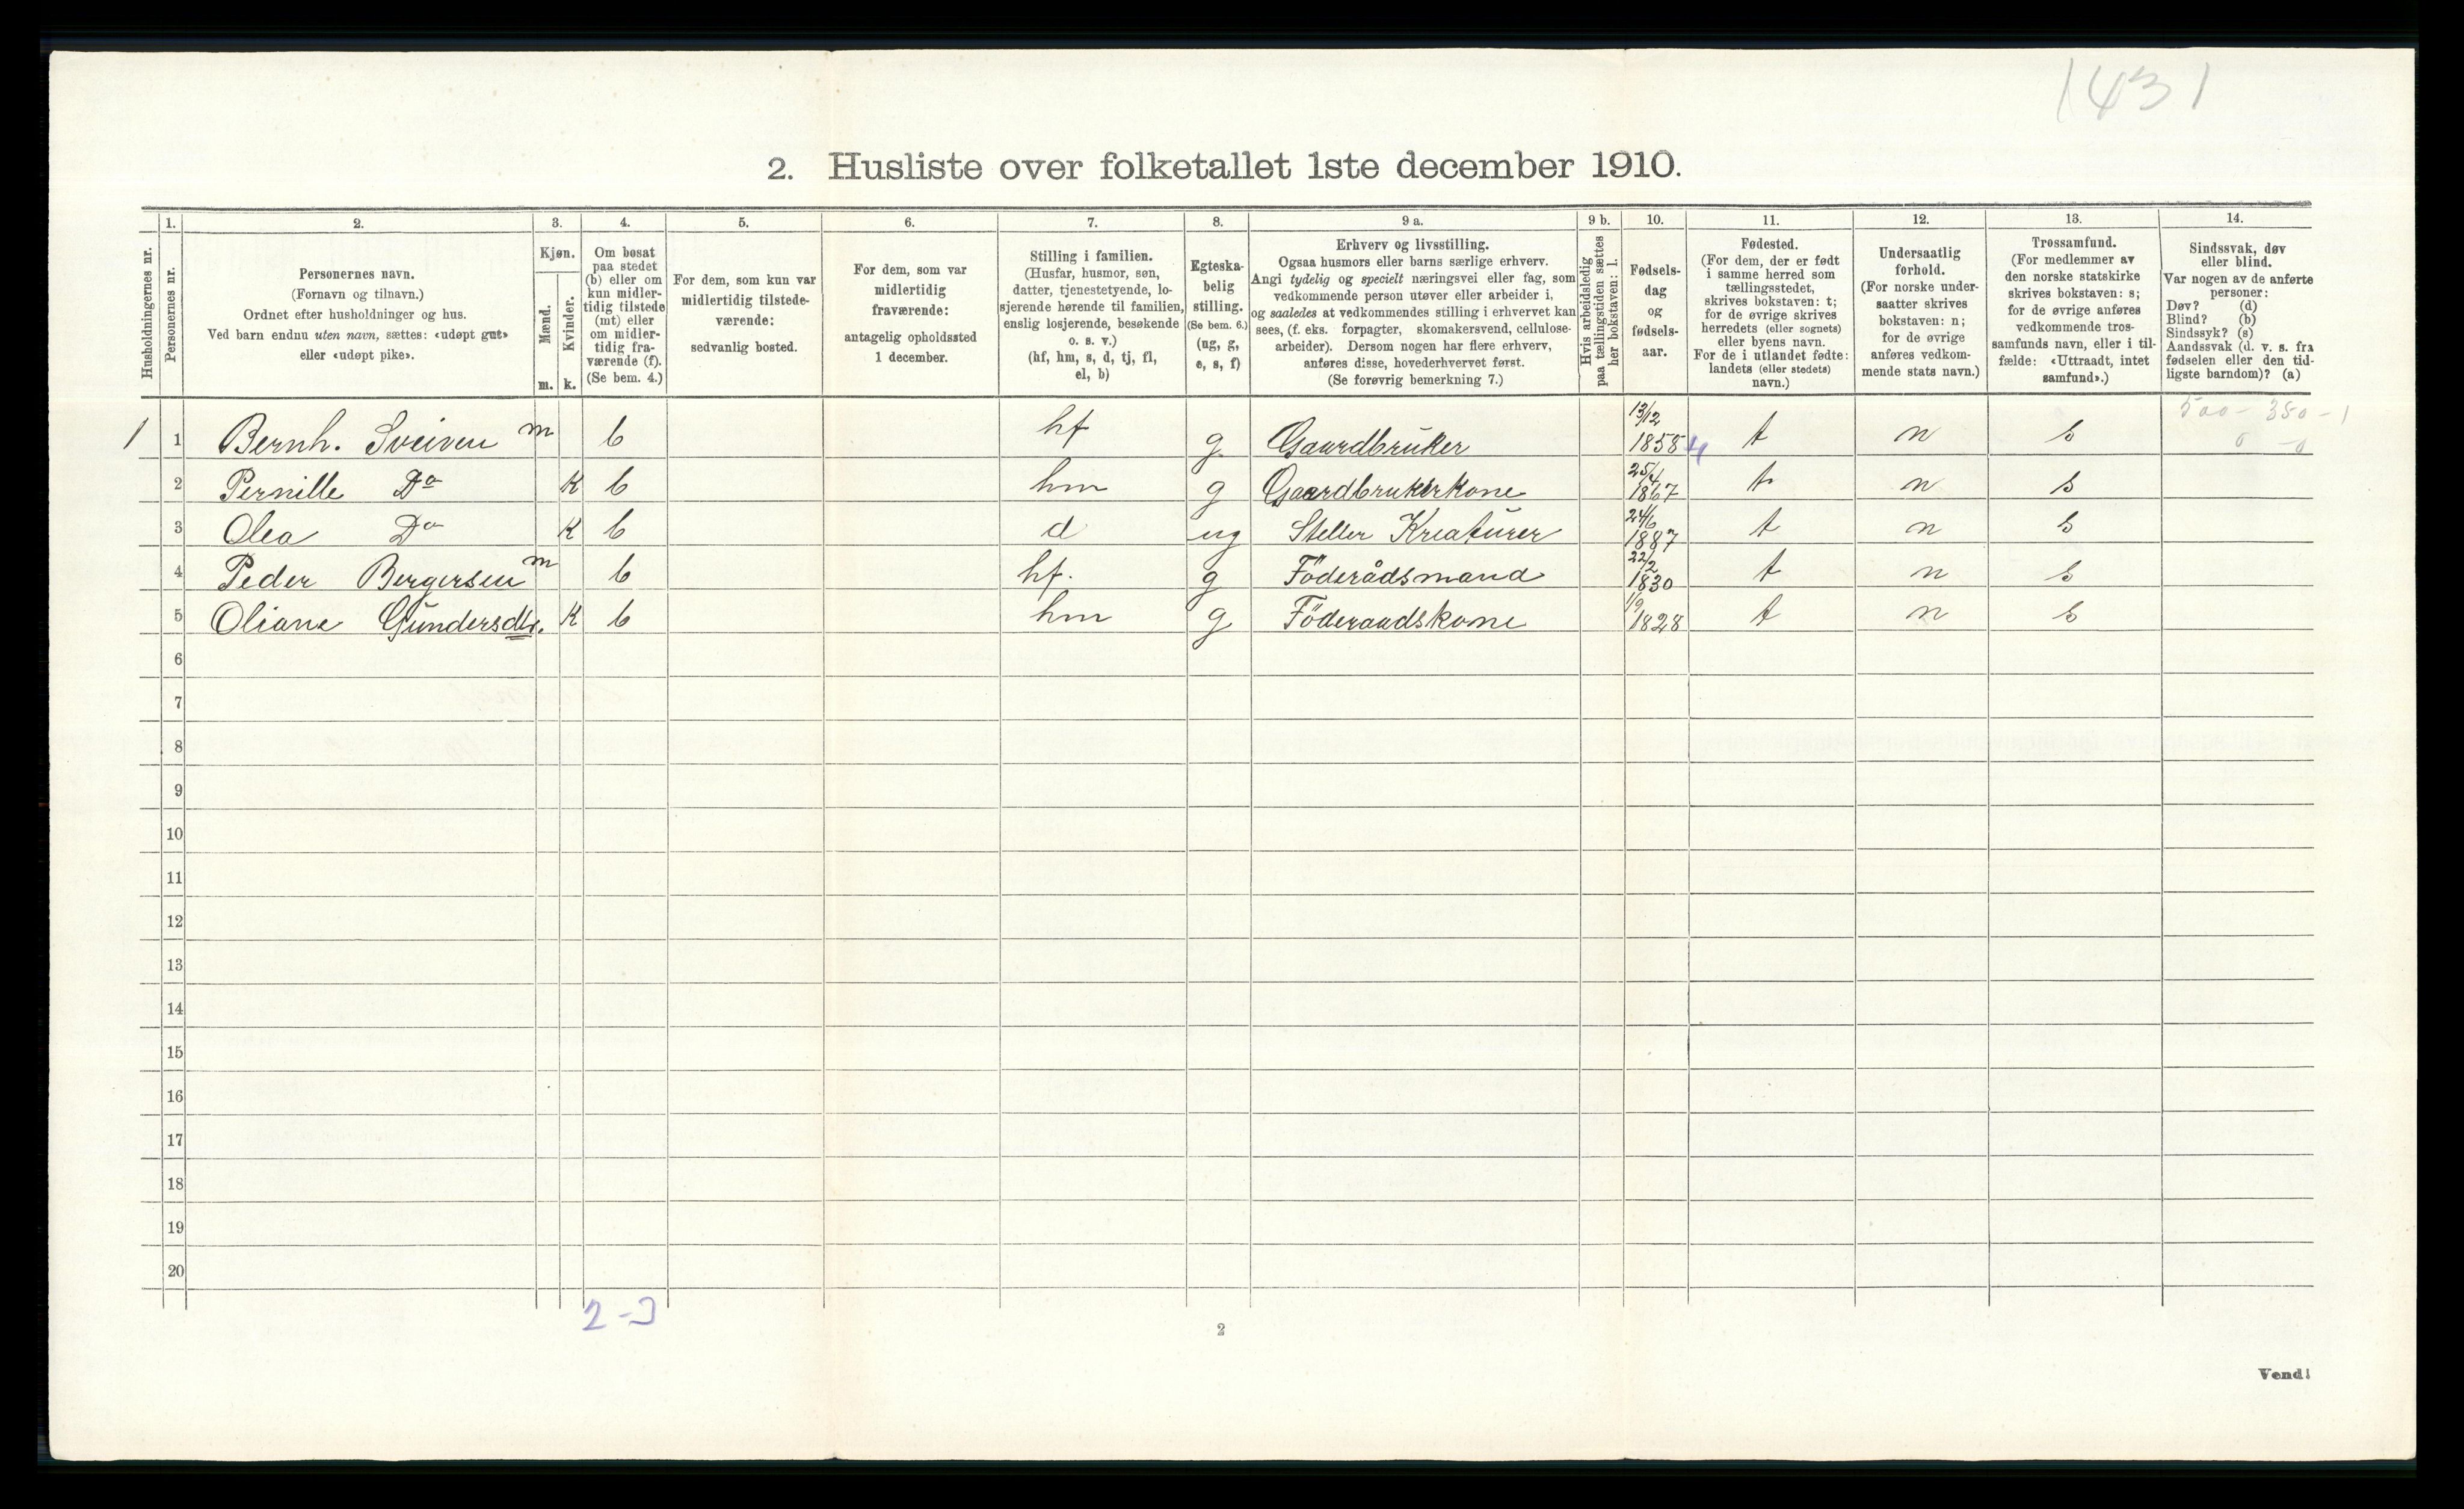 1431
2. Husliste over folketallet 1ste december 1910.
Husholdningernes nr.
1.
Personernes nr.
2.
Personernes navn.
(Fornavn og tilnavn.)
Ordnet efter husholdninger og hus.
Ved barn endnu uten navn, sættes: «udøpt gut»
eller «udøpt pike».
3.
Kjøn.
Mænd.
m.
Kvinder.
k.
4.
Om bosat
paa stedet
(b) eller om
kun midler-
tidig tilstede
(mt) eller
om midler-
tidig fra-
værende (f).
(Se bem. 4.)
5.
For dem, som kun var
midlertidig tilstede-
værende:
sedvanlig bosted.
6.
For dem, som var
midlertidig
fraværende:
antagelig opholdssted
1 december.
7.
Stilling i familien.
(Husfar, husmor, søn,
datter, tjenestetyende, lo-
sjerende hørende til familien,
enslig losjerende, besøkende
o. s. v.)
(hf, hm, s, d, tj, fl,
el, b)
8.
Egteska-
belig
stilling.
(Se bem. 6.)
(ug, g,
e, s, f)
9 a.
Erhverv og livsstilling.
Ogsaa husmors eller barns særlige erhverv.
Angi tydelig og specielt næringsvei eller fag, som
vedkommende person utøver eller arbeider i,
og saaledes at vedkommendes stilling i erhvervet kan
sees, (f. eks. forpagter, skomakersvend, cellulose-
arbeider). Dersom nogen har flere erhverv,
anføres disse, hovederhvervet først.
(Se forøvrig bemerkning 7.)
9 b.
Hvis arbeidsledig
paa tællingstiden sættes
her bokstaven: l.
10.
Fødsels-
dag
og
fødsels-
aar.
11.
Fødested.
(For dem, der er født
i samme herred som
tællingsstedet,
skrives bokstaven: t;
for de øvrige skrives
herredets (eller sognets)
eller byens navn.
For de i utlandet fødte:
landets (eller stedets)
navn.)
12.
Undersaatlig
forhold.
(For norske under-
saatter skrives
bokstaven: n;
for de øvrige
anføres vedkom-
mende stats navn.)
13.
Trossamfund.
(For medlemmer av
den norske statskirke
skrives bokstaven: s;
for de øvrige anføres
vedkommende tros-
samfunds navn, eller i til-
fælde: «Uttraadt, intet
samfund».)
14.
Sindssvak, døv
eller blind.
Var nogen av de anførte
personer:
Døv? (d)
Blind? (b)
Sindssyk? (s)
Aandssvak (d. v. s. fra
fødselen eller den tid-
ligste barndom)? (a)
500 - 350 - 1
0 - 0
1 1 Bernh. Sveiven m b hf g Gaardbruker 13/12 1858 4 t n s
2 Pernille Do K b hm g Gaardbrukerkone 25/4 1867 t n s
3 Olea Do K b d ug Steller Kreaturer 24/6 1887 t n s
4 Peder Bergersen m b hf. g Föderådsmand 22/2 1830 t n s
5 Oliane Gundersdtr. K b hm g Föderaadskone 1/9 1828 t n s
6
7
8
9
10
11
12
13
14
15
16
17
18
19
20
2 - 3
2
Vend!